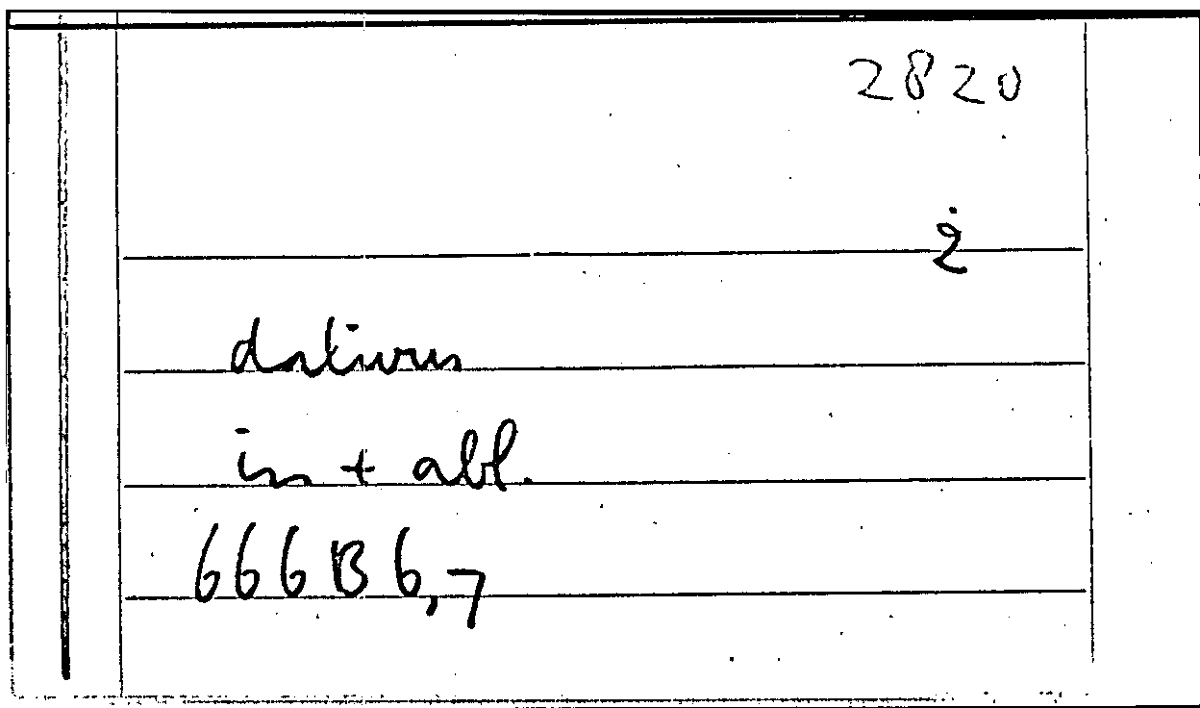 2820
ż
dativus
in + abl.
666B6,7